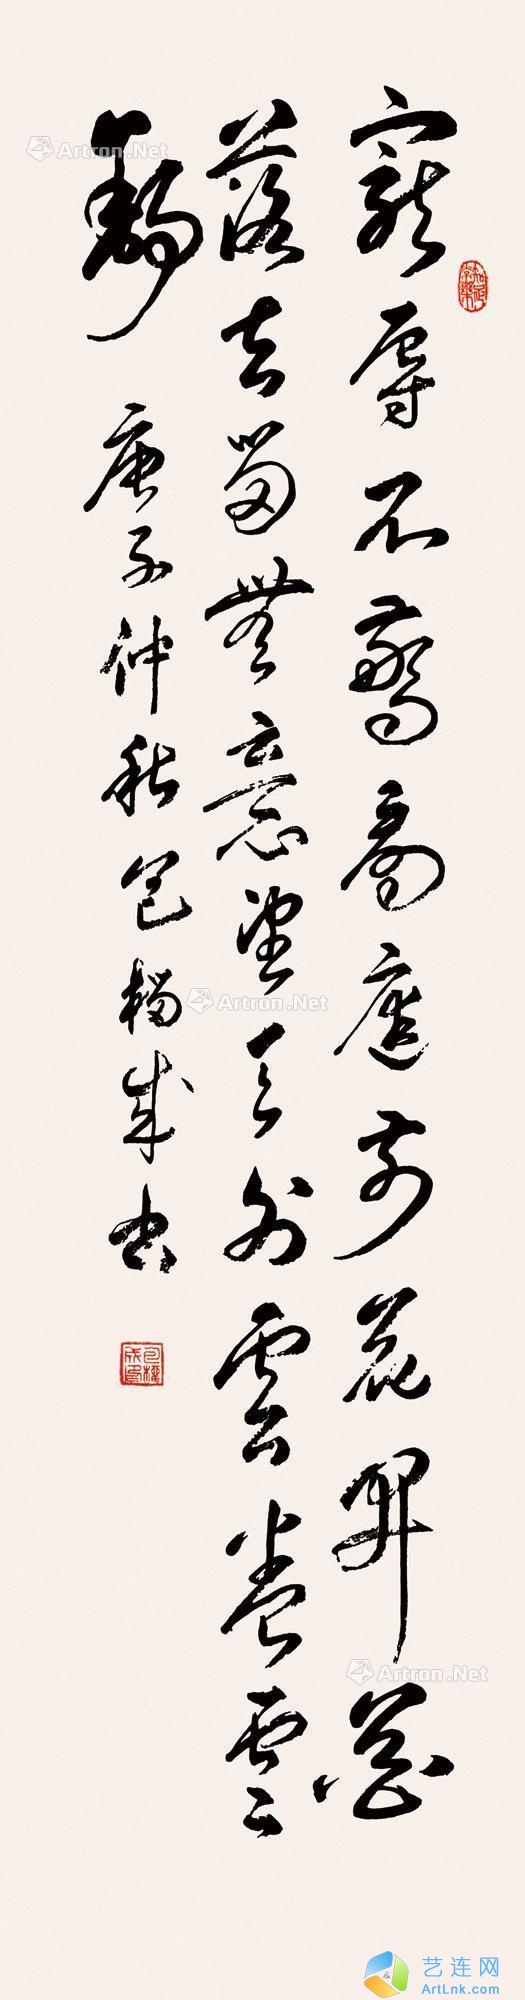 寵辱不驚看庭前花開花
落去留無意望天外雲卷雲
舒
庚子仲秋包成书
知足常樂
Artron.Net
Artron.Net
Artron.Net
艺连网
ArtLnk.com